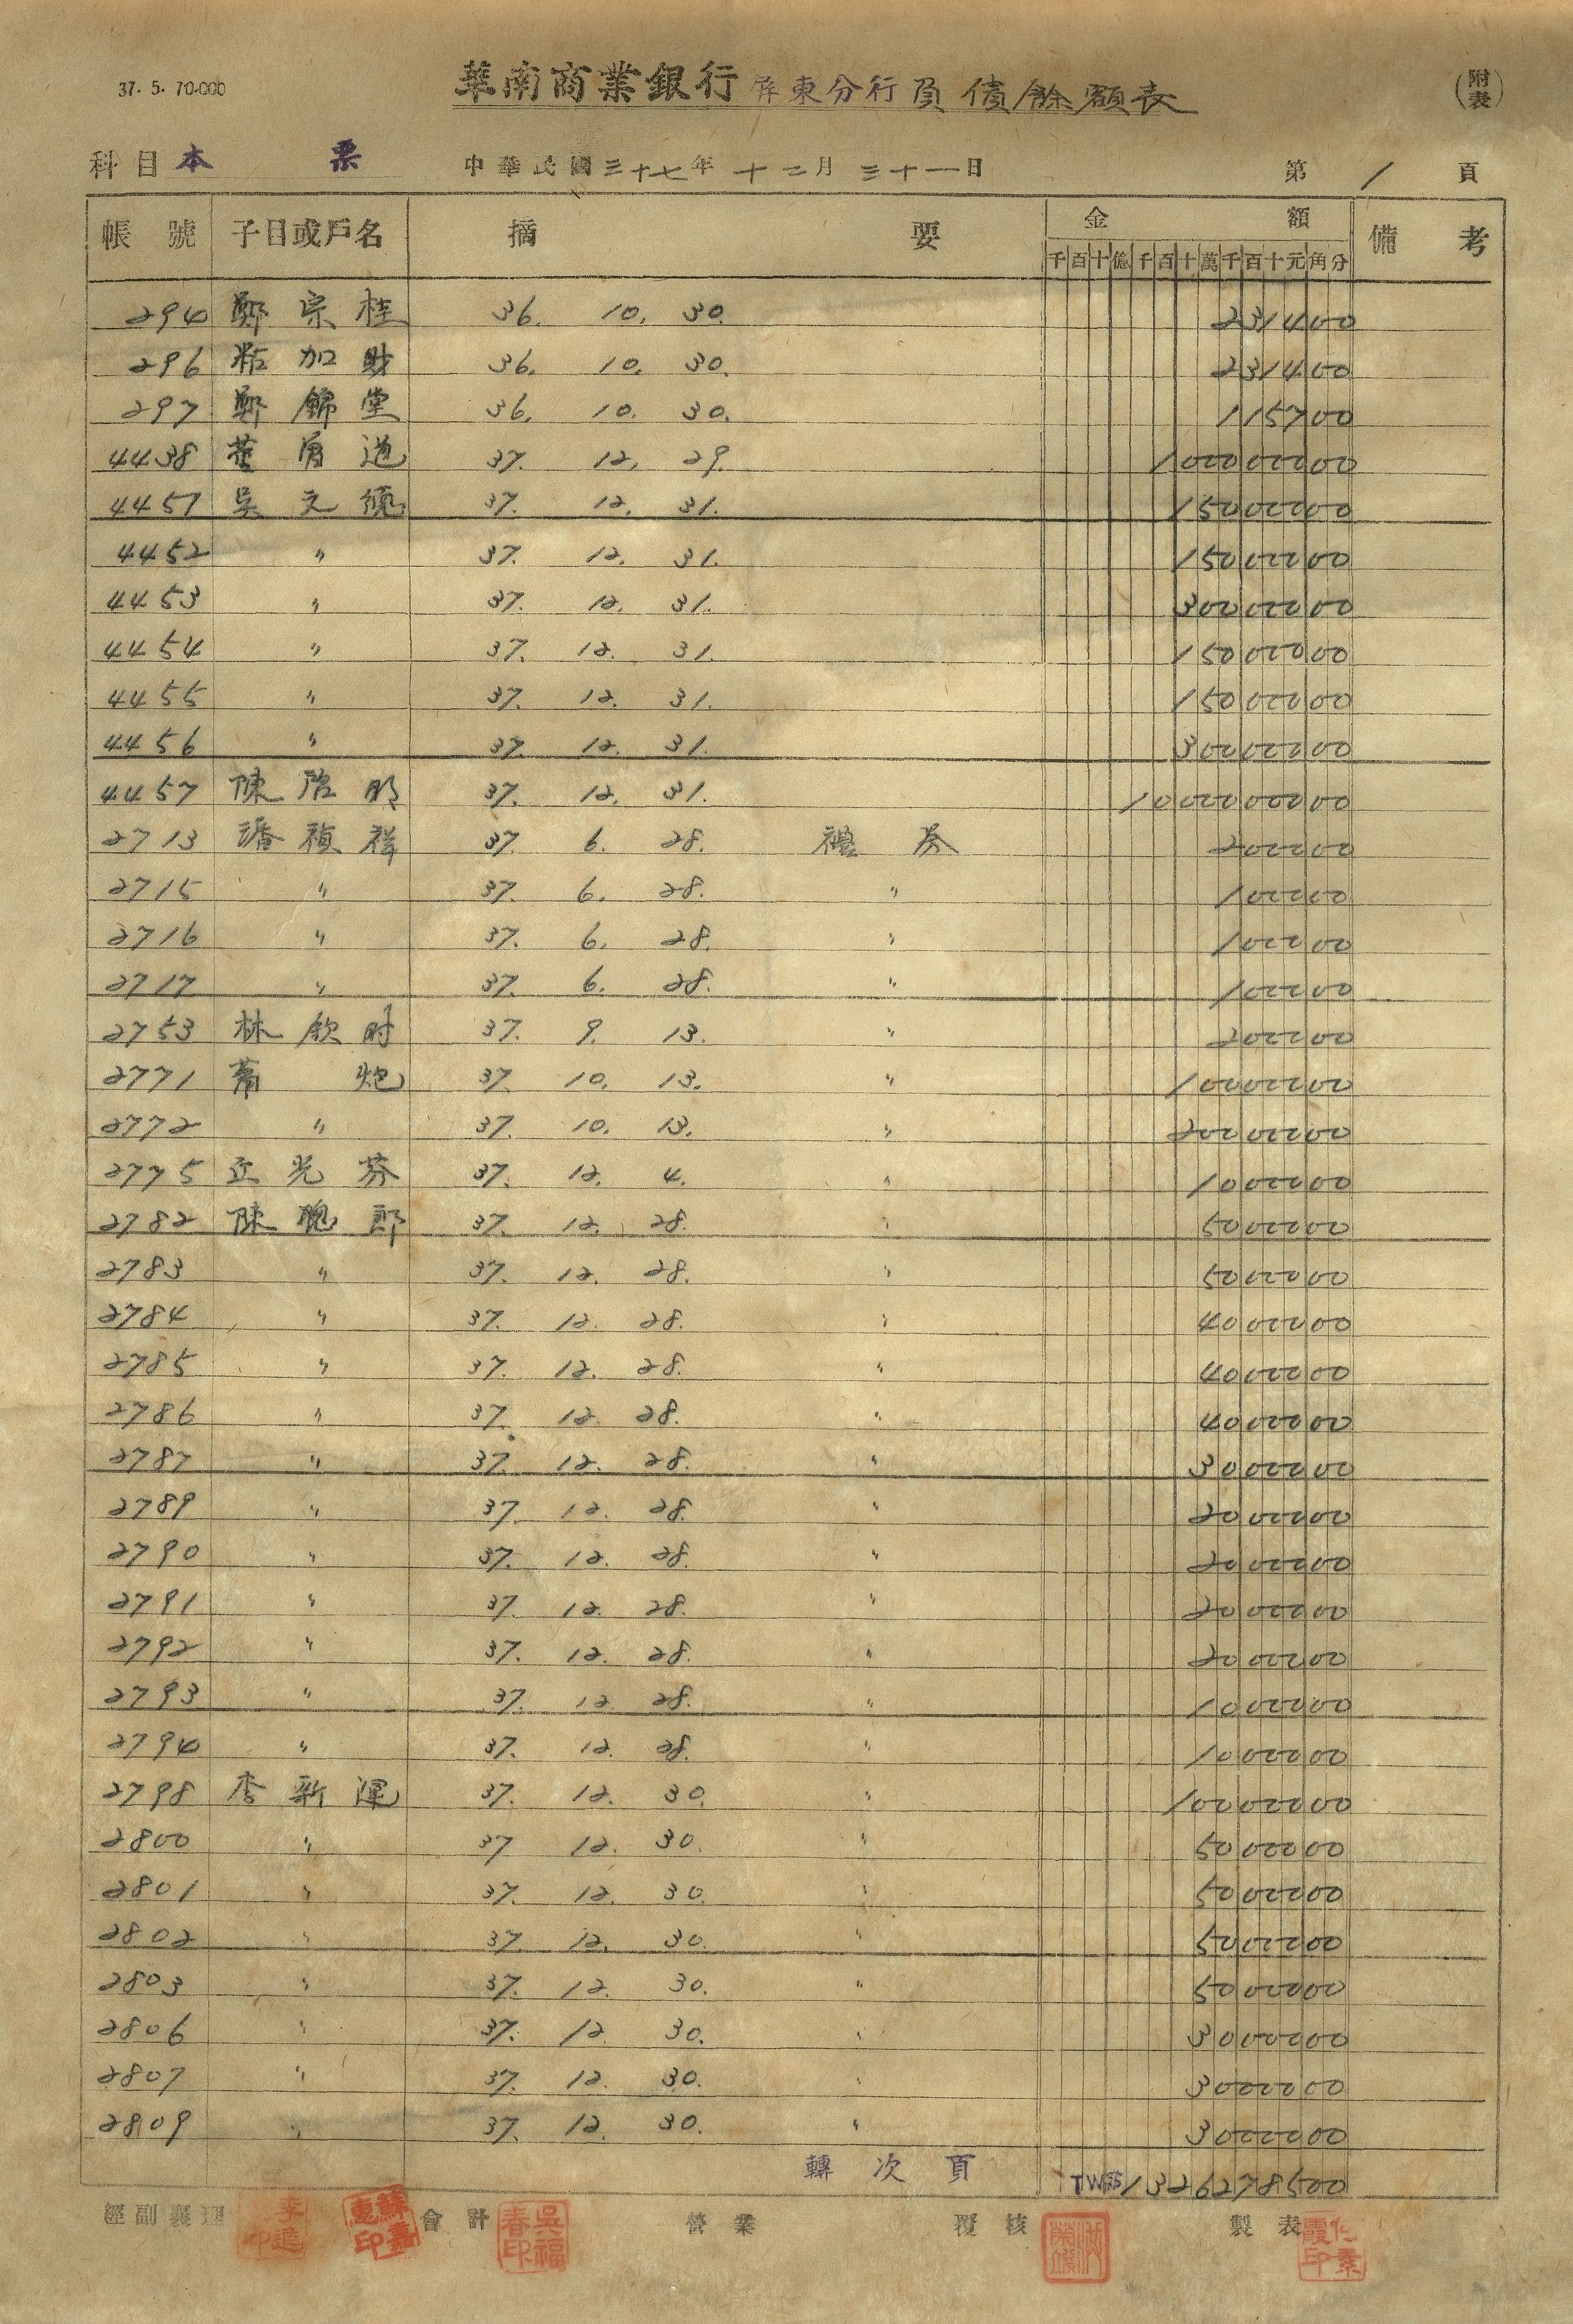 37. 5. 70.000
華南商業銀行 屏東分行 負債餘額表
(附表)
科目 本 票 中華民國三十七年十二月三十一日 第 1 頁
帳號 子目或戶名 摘要 金額 備考
千百十億千百十萬千百十元角分
294 鄭宗桂 36. 10. 30. 231400
296 粘加財 36. 10. 30. 231400
297 鄭錦堂 36. 10. 30. 115700
4438 37. 12. 29. 100000000
4451 吳元 37. 12. 31. 15000000
4452 〃 37. 12. 31. 15000000
4453 〃 37. 12. 31. 30000000
4454 〃 37. 12. 31. 15000000
4455 〃 37. 12. 31. 15000000
4456 〃 37. 12. 31. 30000000
4457 陳啓明 37. 12. 31. 1000000000
2713 潘禎祥 37. 6. 28. 禮券 200000
2715 〃 37. 6. 28. 〃 100000
2716 〃 37. 6. 28. 〃 100000
2717 〃 37. 6. 28. 〃 100000
2753 林欽時 37. 9. 13. 〃 200000
2771 蕭炮 37. 10. 13. 〃 10000000
2772 〃 37. 10. 13. 〃 20000000
2775 光芬 37. 12. 4. 〃 1000000
2782 陳聰郎 37. 12. 28. 〃 5000000
2783 〃 37. 12. 28. 〃 5000000
2784 〃 37. 12. 28. 〃 4000000
2785 〃 37. 12. 28. 〃 4000000
2786 〃 37. 12. 28. 〃 4000000
2787 〃 37. 12. 28. 〃 3000000
2789 〃 37. 12. 28. 〃 2000000
2790 〃 37. 12. 28. 〃 2000000
2791 〃 37. 12. 28. 〃 2000000
2792 〃 37. 12. 28. 〃 2000000
2793 〃 37. 12. 28. 〃 1000000
2794 〃 37. 12. 28. 〃 1000000
2798 李新運 37. 12. 30. 〃 10000000
2800 〃 37 12. 30. 〃 5000000
2801 〃 37. 12. 30. 〃 5000000
2802 〃 37. 12. 30. 〃 5000000
2803 〃 37. 12. 30. 〃 5000000
2806 〃 37. 12. 30. 〃 3000000
2807 〃 37. 12. 30. 〃 3000000
2809 〃 37. 12. 30. 〃 3000000
轉次頁 1326278500
經副襄理 會計 吳福春印 營業 覆核 製表